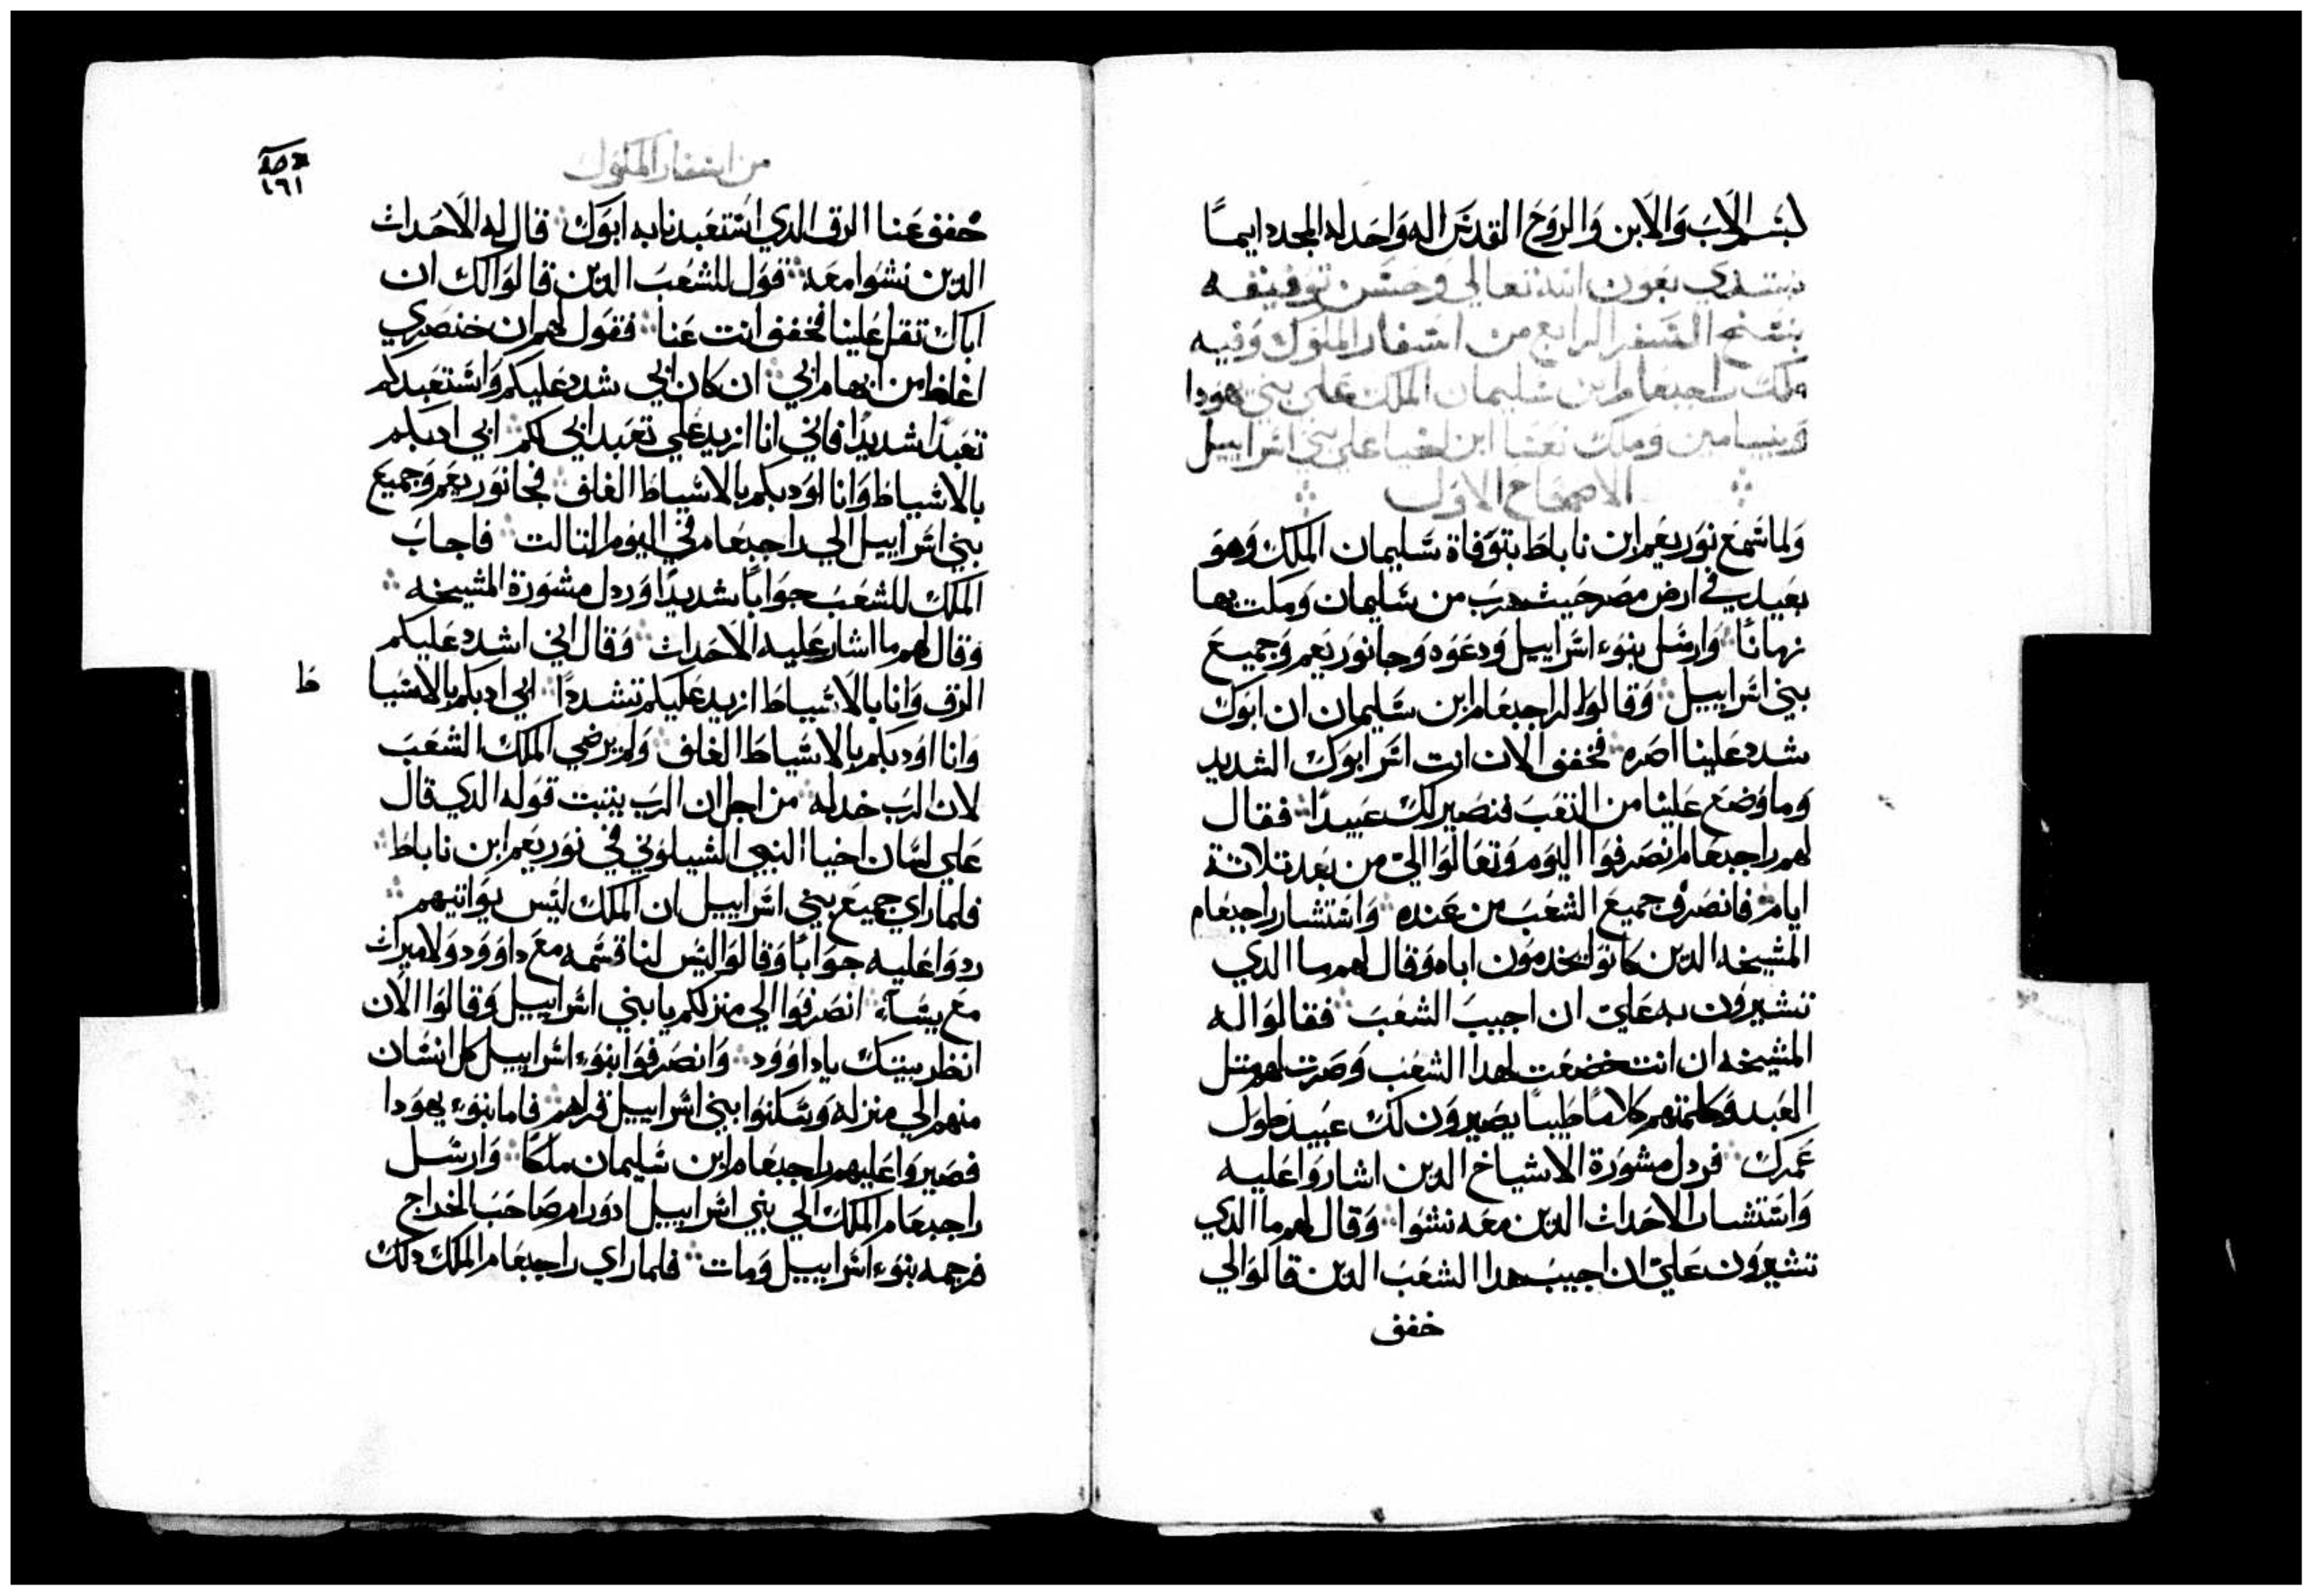 بسم الاب والابن والروح القدس اله واحد له المجد دايمـا
نبتدي بعون الله تعالي وحسن توفيقه
بنسخ السفر الرابع من اسفار الملوك وفيه
ملك راجبعام ابن سليمان الملك علي بني يهودا
وبنيامين وملك ابن علي بني اسراييل
الاصحاح الاول
ولما سمع نوربعم ابن ناباط بتوفاة سليمان الملك وهو
بعيد في ارض مصر حيث هرب من سليمان ومكت بها
زمانًا وارسل بنوء اسراييل ودعوه وجا نوربعم وجميع
بني اسراييل وقالوا لراجبعام ابن سليمان ان ابوك
شدد علينا اصره فخفف الان انت اسر ابوك الشديد
وما وضع علينا من التعب فنصير لك عبيدًا فقال
لهم راجبعام انصرفوا اليوم وتعالوا اليّ من بعد تلاتة
ايام فانصرف جميع الشعب من عنده واستشار راجبعام
المشيخه الدين كانوا يخدمون اباه وقال لهم ما الدي
تشيرون به علي ان اجيب الشعب فقالوا له
المشيخه ان انت خضعت لهدا الشعب وصرت لهم متل
العبد وكلمتهم كلامًا طيبًا يصيرون لك عبيد طول
عمرك فردل مشورة الاشياخ الدين اشاروا عليه
واستشار الاحداث الدين معه نشوا وقال لهم ما الدي
تشيرون عليّ ان اجيب هدا الشعب الدين قالوا لي
خفف
من اسفار الملوك
١٦١
خفف عنا الرق الدي استعبدنا به ابوك قال له الاحداث
الدين نشوا معه قول للشعب الدين قالوا لك ان
اباك تقل علينا فخفف انت عنا فقول لهم ان خنصري
اغلظ من ابهام ابي ان كان ابي شدد عليكم واستعبدكم
تعبدًا شديدًا فاني انا ازيد علي تعبد ابي لكم ابي ادبكم
بالاسياط وانا اودبكم بالاسياط الغلف فجا نوربعم وجميع
بني اسراييل الي راجبعام في اليوم التالت فاجاب
الملك للشعب جوابًا شديدًا وردل مشورة المشيخه
وقال لهم ما اشار عليه الاحداث وقال ابي اشدد عليكم
الرق وانا بالاسياط ازيد عليكم تشددًا ابي ادبكم بالاسيا
ط
وانا اودبكم بالاسياط الغلف ولم يرضي الملك الشعب
لان الرب خدله من اجل ان الرب يتبت قوله الدي قال
علي لسان اخيا النبي الشيلوني في نوربعم ابن ناباط
فلما راي جميع بني اسراييل ان الملك ليس يواتيهم
ردوا عليه جوابًا وقالوا ليس لنا قسمه مع داوود ولا ميراث
مع يسآء انصرفوا الي منزلكم يا بني اسراييل وقالوا الان
انظر بيتك يا داوود وانصرفوا بنوء اسراييل كل انسان
منهم الي منزله وسكنوا بني اسراييل قراهم فاما بنوء يهودا
فصيروا عليهم راجبعام ابن سليمان ملكًا وارسل
راجبعام الملك الي بني اسراييل ادورام صاحب الخراج
فرجمه بنوء اسراييل ومات فلما راي راجبعام الملك دلك